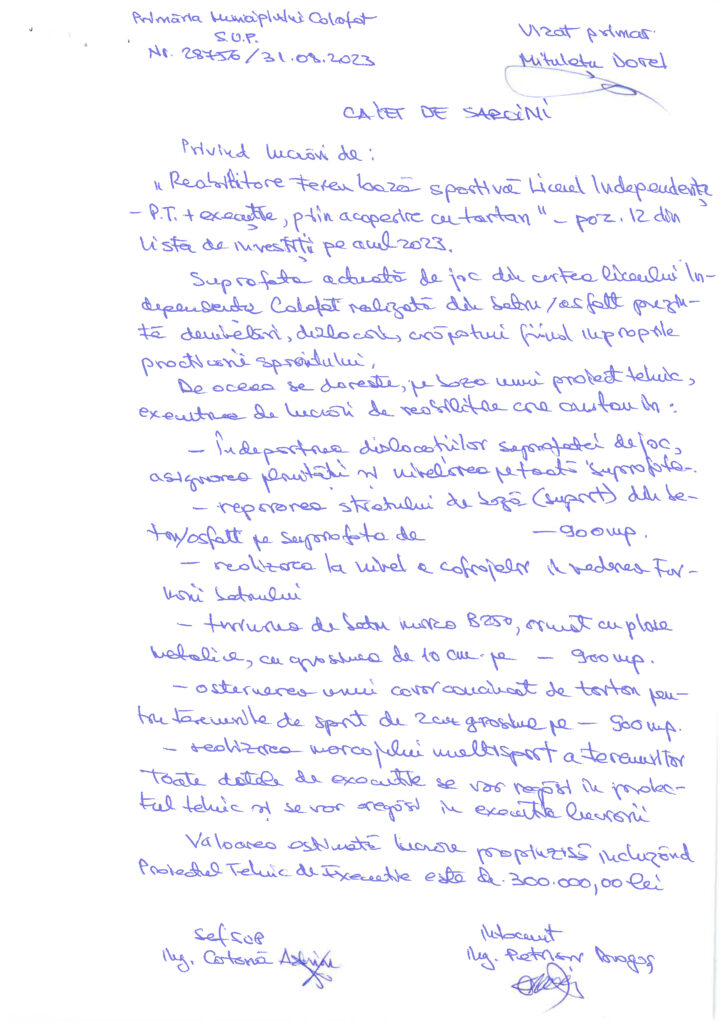 Primăria Municipiului Calafat
S.U.P.
Nr. 28756/31.08.2023
Vizat primar
Mituletu Dorel
CAIET DE SARCINI
Privind lucrări de:
„Reabilitare teren bază sportivă Liceul Independența
– P.T. + execuție, prin acoperire cu tartan" – poz. 12 din
Lista de investiții pe anul 2023.
Suprafața actuală de joc din curtea liceului In-
dependența Calafat realizată din beton/asfalt prezin-
tă denivelări, dizlocări, crăpături fiind improprie
practicării sportului.
De aceea se dorește, pe baza unui proiect tehnic,
executarea de lucrări de reabilitare care constau în:
– Îndepărtarea dislocațiilor suprafaței de joc,
asigurarea planității și nivelarea pe toată suprafața.
– repararea stratului de bază (suport) din be-
ton/asfalt pe suprafața de – 900 mp.
– realizarea la nivel a cofrajelor în vederea tur-
nării betonului
– turnarea de beton marca B250, armat cu plase
metalice, cu grosimea de 10 cm pe – 900 mp.
– așternerea unui covor cauciucat de tartan pen-
tru terenurile de sport de 2 cm grosime pe – 900 mp.
– realizarea marcajului multisport a terenurilor
Toate datele de execuție se vor regăsi în proiec-
tul tehnic și se vor regăsi în execuția lucrării
Valoarea estimată lucrare propriuzisă incluzând
Proiectul Tehnic de Execuție este de 300.000,00 lei
Șef SUP
Ing. Cotană Adrian
Întocmit
Ing. Dragoș